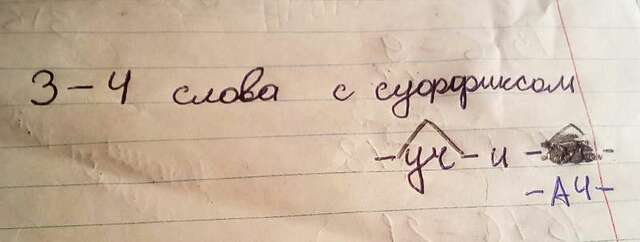 3-4 слова с суффиксом
-уч- и
-АЧ-